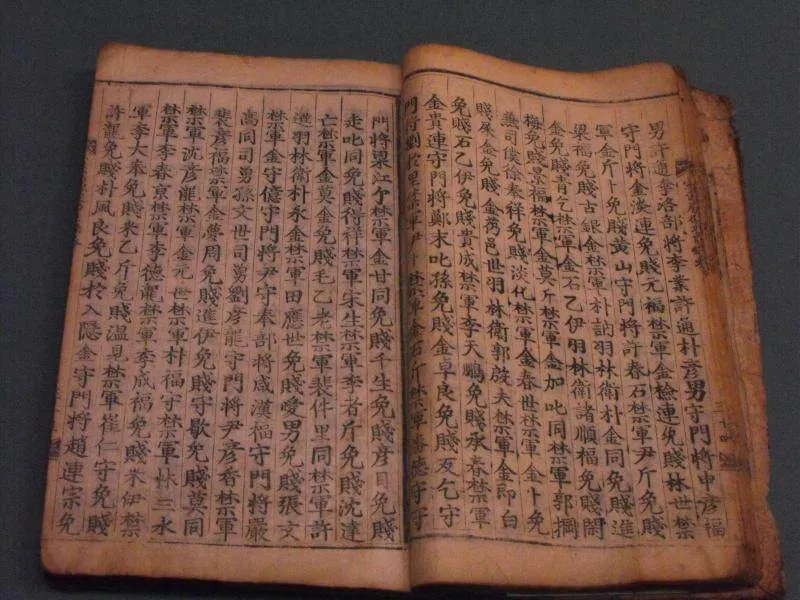 男許通李洛部將李業許通朴彥男守門將申彥福
守門將金漢連免賤元福禁軍金檢連免賤林世禁
軍金斤卜免賤黃山守門將許春石禁軍尹斤免賤
梁福免賤古銀金禁軍朴訥羽林衛朴金同免賤進
金免賤肯乞禁軍金石乙伊羽林衛諸順福免賤閑
梅免賤景福禁軍金莫斤禁軍金加叱同禁軍郭綱
無司僕徐春祥免賤淡化禁軍金春世禁軍金卜免
賤屎金免賤金邑世羽林衛郭啟夫禁軍金即白
免賤石乙伊免賤貴成禁軍李天鵬免賤承春禁軍
金貴連守門將鄭末叱孫免賤金早良免賤乞守
門將劉里禁軍尹禁軍金石斤禁軍德守守
門將梁江禁軍金甘同免賤千生免賤彥目免賤
走叱同免賤得祥禁軍宋生禁軍李者斤免賤沈達
亡禁軍金莫金免賤毛乙老禁軍裴件里同禁軍許
進羽林衛朴永金禁軍田應世免賤愛男免賤張文
禁軍金守億守門將尹守奉部將咸漢福守門將嚴
萬同司勇孫文世司勇劉彥龍守門將尹彥香禁軍
裴彥福禁軍金夢周免賤進伊免賤守歇免賤莫同
禁軍沈彥龍禁軍金元世禁軍朴福守禁軍林三水
禁軍李春京禁軍李德龍禁軍李成福免賤米伊禁
軍李大奉免賤米乙斤免賤溫見禁軍崔仁守免賤
許寵免賤朴風良免賤於入隱金守門將趙連宗免